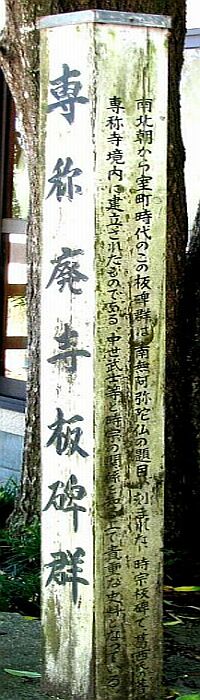 専称廃寺板碑群
南北朝から室町時代のこの板碑群は、南無阿弥陀仏の題目を刻まれた、時宗板碑で、葛西氏
専称寺境内に建立されたものである。中世武士等と時宗の関係を知る上で貴重な史料となっている。